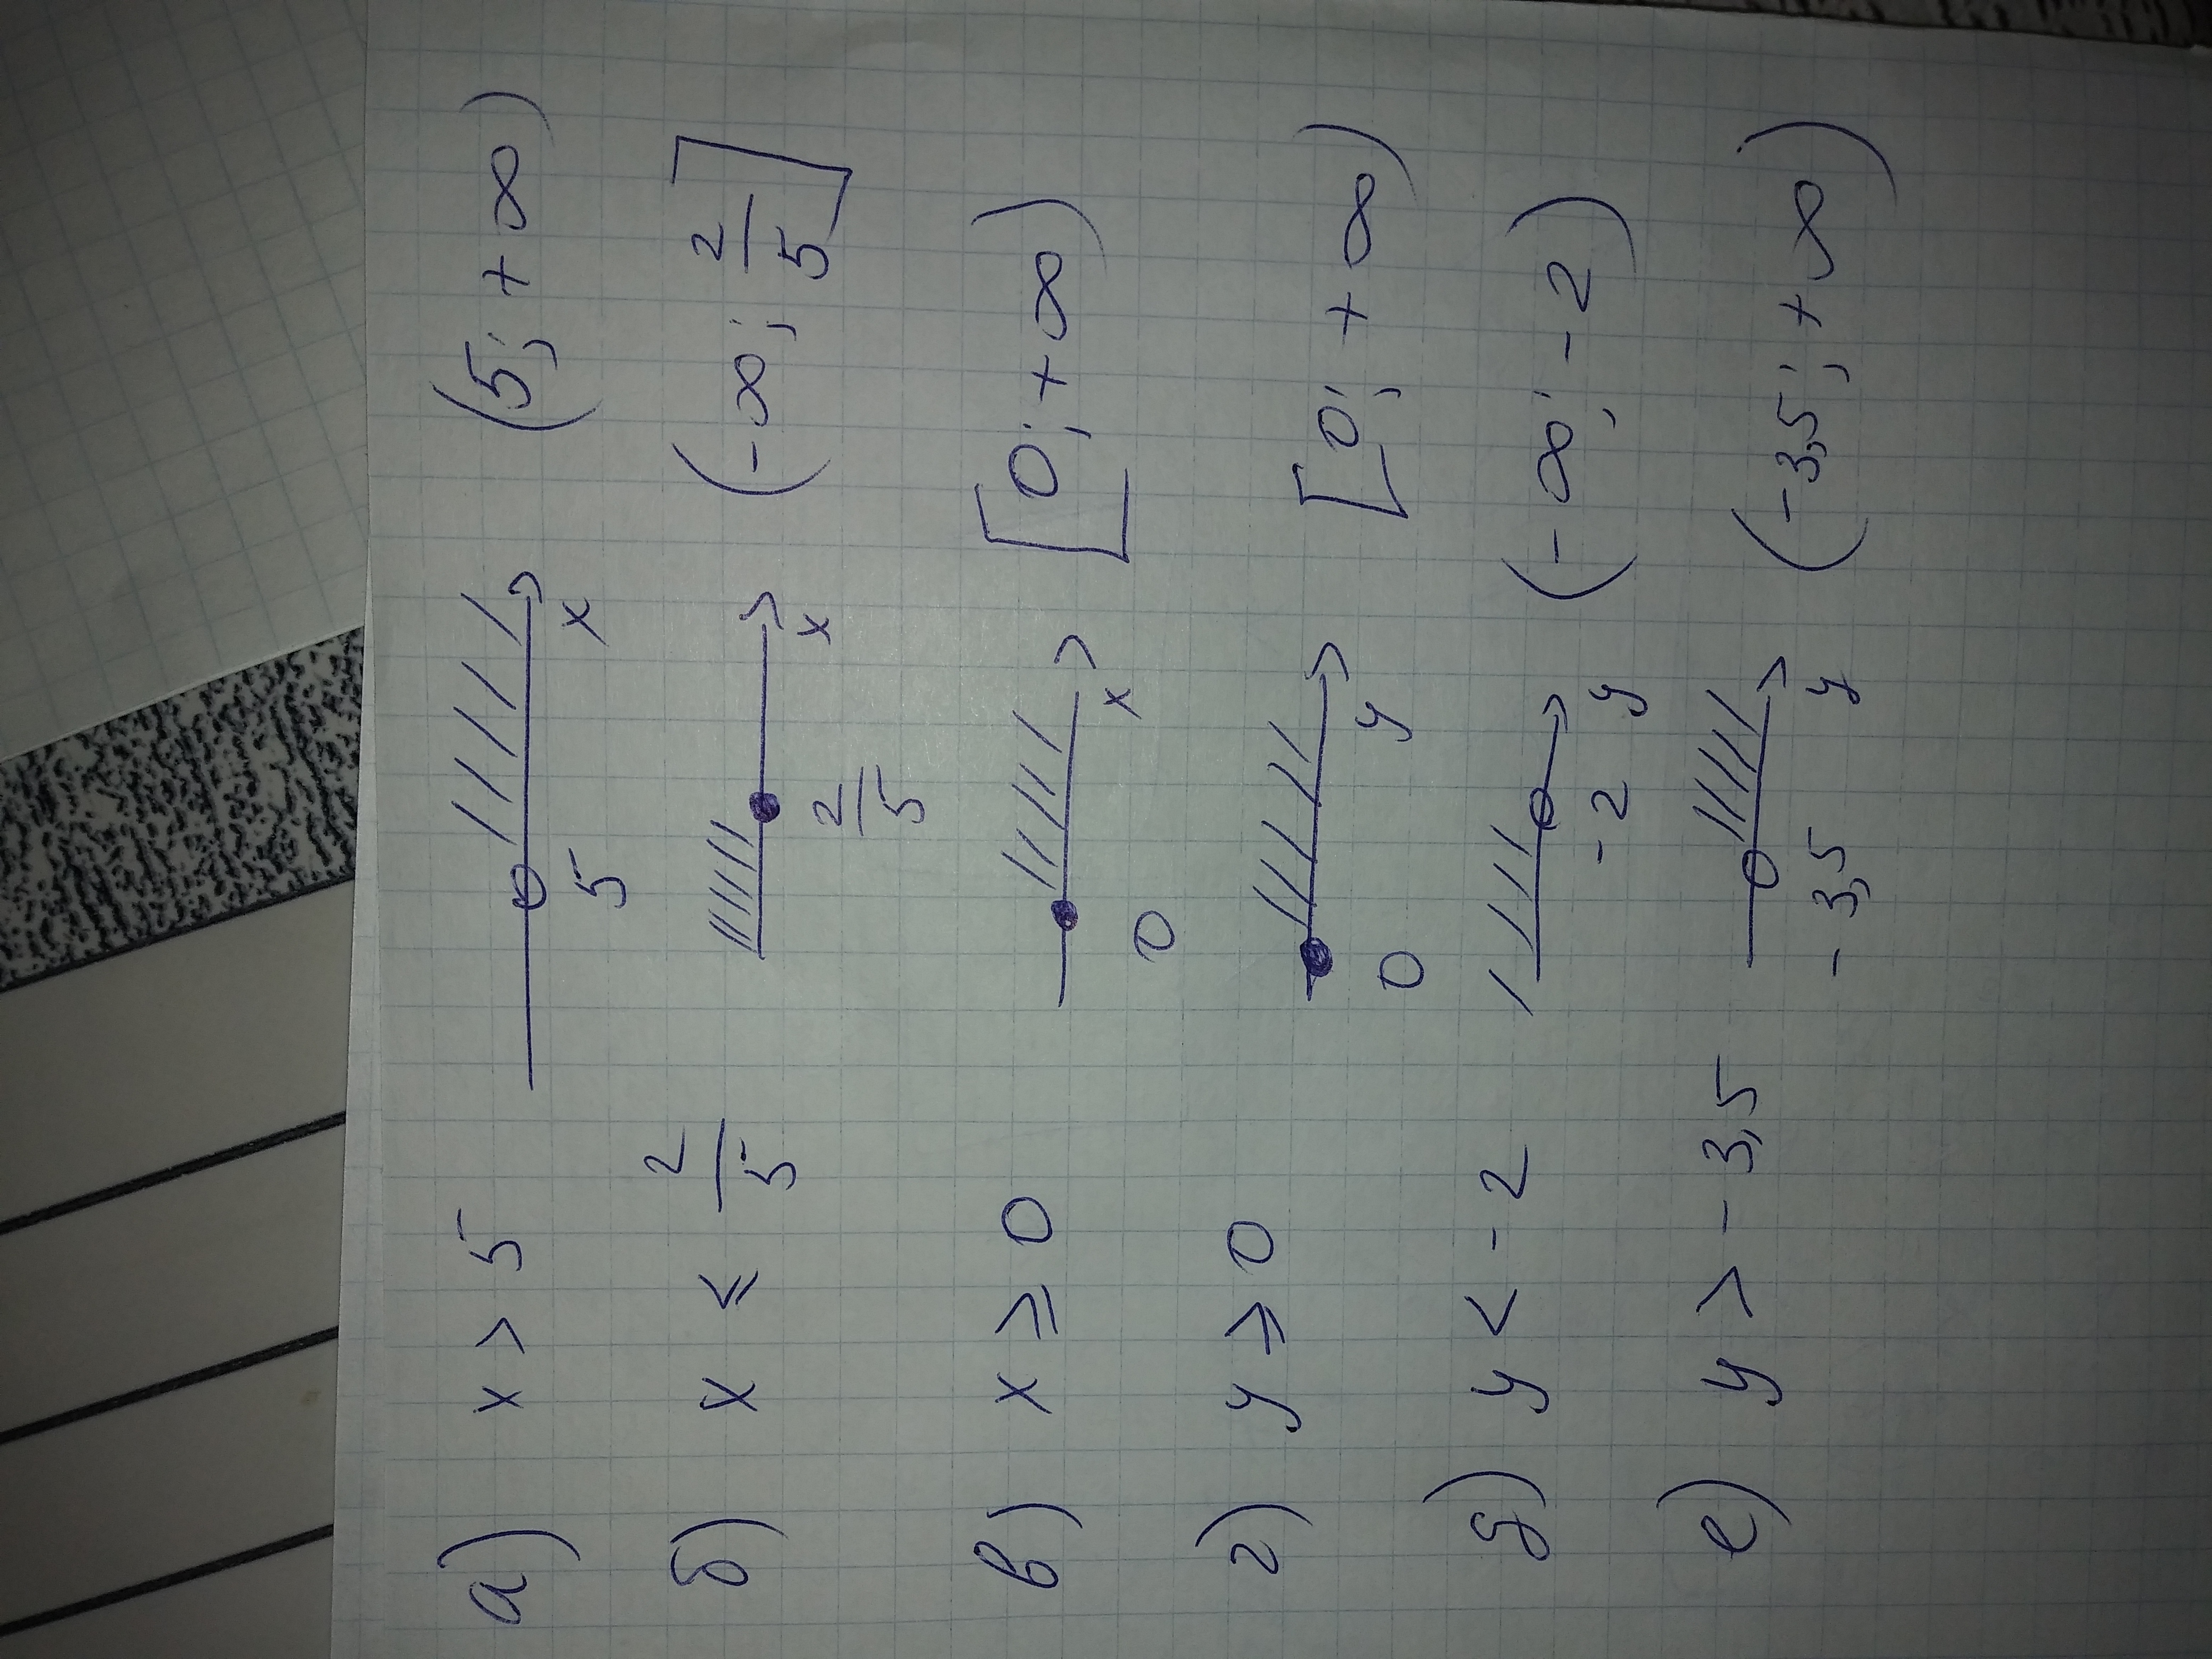 а) x > 5 5 x (5; + ∞)
б) x ≤ 2/5 2/5 x (-∞; 2/5]
в) x ≥ 0 0 x [0; +∞)
г) y ≥ 0 0 y [0; + ∞)
д) y < -2 -2 y (-∞; -2)
е) y > -3,5 -3,5 y (-3,5; +∞)